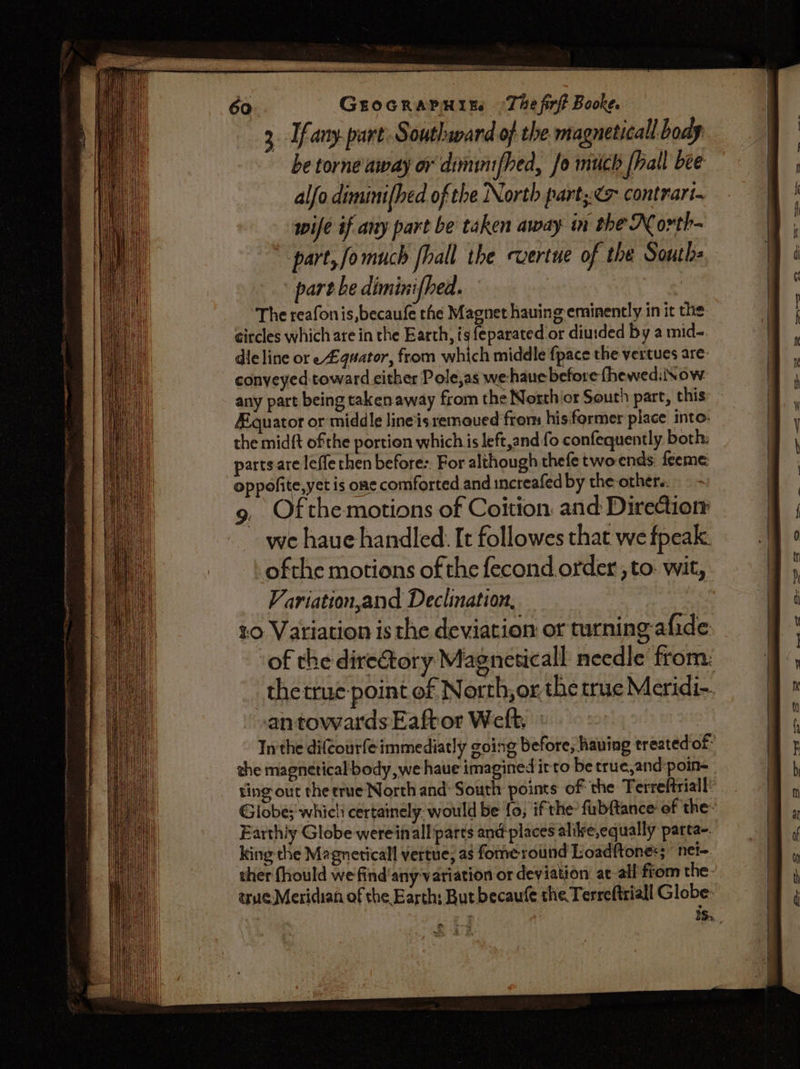 60 GEOGRAPHIE. The firſt Booke.
3. If any part Southward of the magneticall body
be torne away or diminiſhed, ſo much ſhall bee
alſo diminiſhed of the North part; & contrari-
wiſe if any part be taken away in the North-
part, ſo much ſhall the vertue of the South-
part be diminiſhed.
The reaſon is, becauſe the Magnet hauing eminently in it the
circles which are in the Earth, is ſeparated or diuided by a mid-
dle line or Æquator, from which middle ſpace the vertues are
conveyed toward either Pole, as we haue before ſhewed: Now
any part being taken away from the North or South part, this
Æquator or middle line is remoued from his former place into
the midſt of the portion which is left, and ſo conſequently both
parts are leſſe then before. For although theſe two ends ſeeme
oppoſite, yet is one comforted and increaſed by the other.
9. Of the motions of Coition and Direction
we haue handled. It followes that we ſpeak
of the motions of the ſecond order, to wit,
Variation, and Declination,
10 Variation is the deviation or turning aſide
of the directory Magneticall needle from
the true point of North, or the true Meridi-
an towards Eaſt or Weſt.
In the diſcourſe immediatly going before, hauing treated of
the magnetical body, we haue imagined it to be true, and poin-
ting out the true North and South points of the Terreſtriall
Globe; which certainely would be ſo, if the ſubſtance of the
Earthly Globe were in all parts and places alike, equally parta-
king the Magneticall vertue, as ſome round Loadſtones; nei-
ther ſhould we find any variation or deviation at all from the
true Meridian of the Earth: But becauſe the Terreſtriall Globe
is,